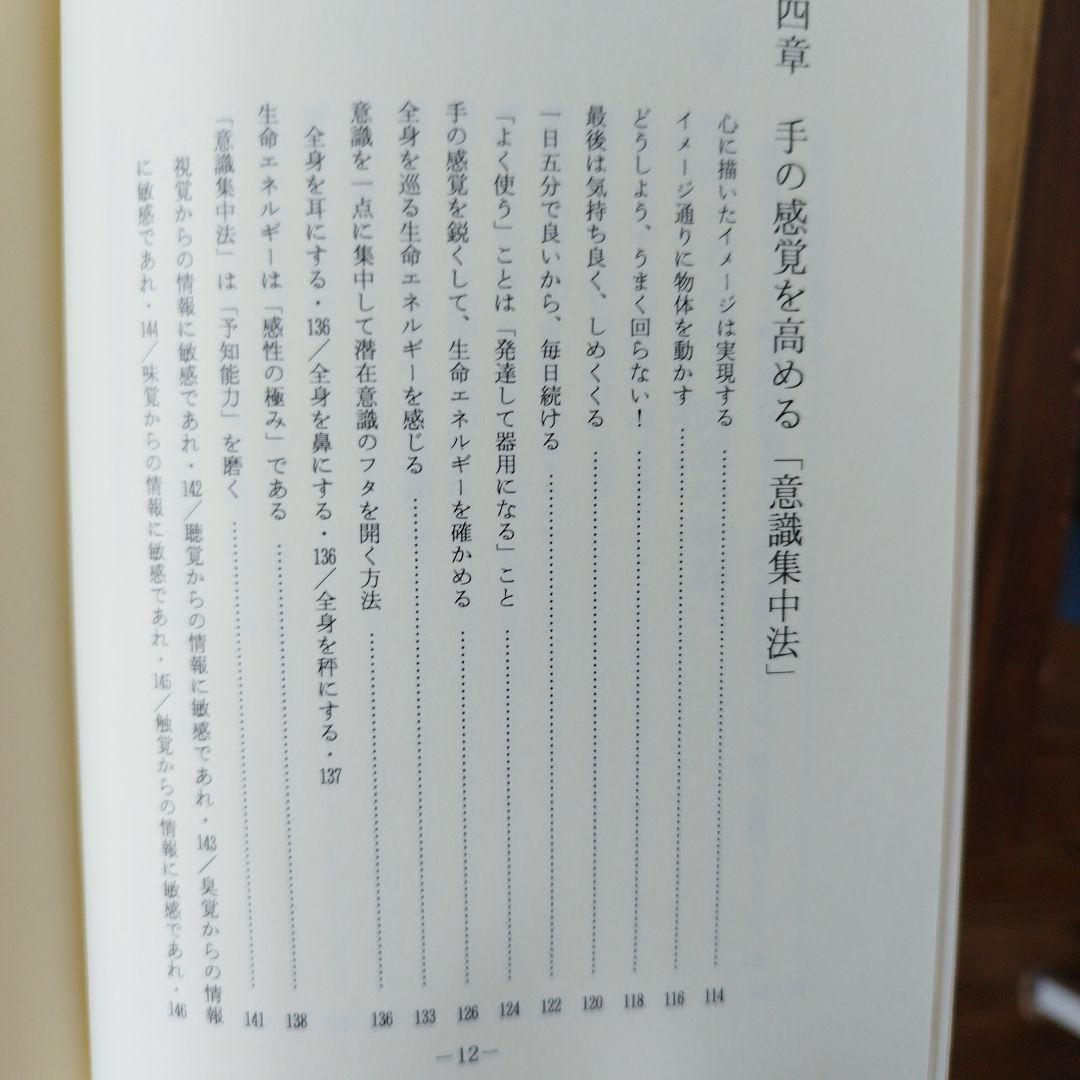 四章　手の感覚を高める「意識集中法」
心に描いたイメージは実現する……………………114
イメージ通りに物体を動かす……………………116
どうしよう、うまく回らない！……………………118
最後は気持ち良く、しめくくる……………………120
一日五分で良いから、毎日続ける……………………122
「よく使う」ことは「発達して器用になる」こと……………………124
手の感覚を鋭くして、生命エネルギーを確かめる……………………126
全身を巡る生命エネルギーを感じる……………………133
意識を一点に集中して潜在意識のフタを開く方法……………………136
全身を耳にする・136／全身を鼻にする・136／全身を秤にする・137
生命エネルギーは「感性の極み」である……………………138
「意識集中法」は「予知能力」を磨く……………………141
視覚からの情報に敏感であれ・142／聴覚からの情報に敏感であれ・143／臭覚からの情報
に敏感であれ・144／味覚からの情報に敏感であれ・145／触覚からの情報に敏感であれ・146
―12―